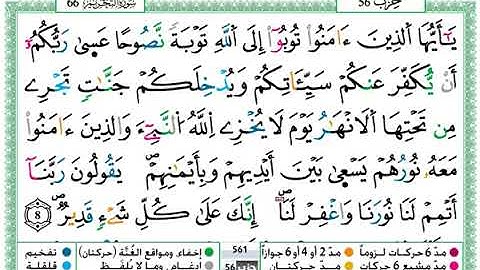 66 سورة التحريم حزب 56
يَٰٓأَيُّهَا ٱلَّذِينَ ءَامَنُواْ تُوبُوٓاْ إِلَى ٱللَّهِ تَوْبَةً نَّصُوحًا عَسَىٰ رَبُّكُمُۥٓ
أَنْ يُّكَفِّرَ عَنكُمْ سَيِّـَٔاتِكُمْ وَيُدْخِلَكُمْ جَنَّٰتٍ تَجْرِے
مِن تَحْتِهَا ٱلَانْهَٰرُ يَوْمَ لَا يُخْزِے اِللَّهُ ٱلنَّبِےٓءَ وَٱلذِينَ ءَامَنُواْ
مَعَهُۥ نُورُهُمْ يَسْعَىٰ بَيْنَ أَيْدِيهِمْ وَبِأَيْمَٰنِهِمْ يَقُولُونَ رَبَّنَآ
أَتْمِمْ لَنَا نُورَنَا وَٱغْفِرْ لَنَآ إِنَّكَ عَلَىٰ كُلِّ شَےْءٍ قَدِيرٌ 8
مدّ 6 حركات لزوماً مدّ 2 أو 4 أو 6 جوازاً 561 إخفاء، ومواقع الغُنَّة (حركتان) تفخيم
مدّ مشبع 6 حركات مدّ حركتان 56 إدغام، وما لا يُلفَظ قلقلة